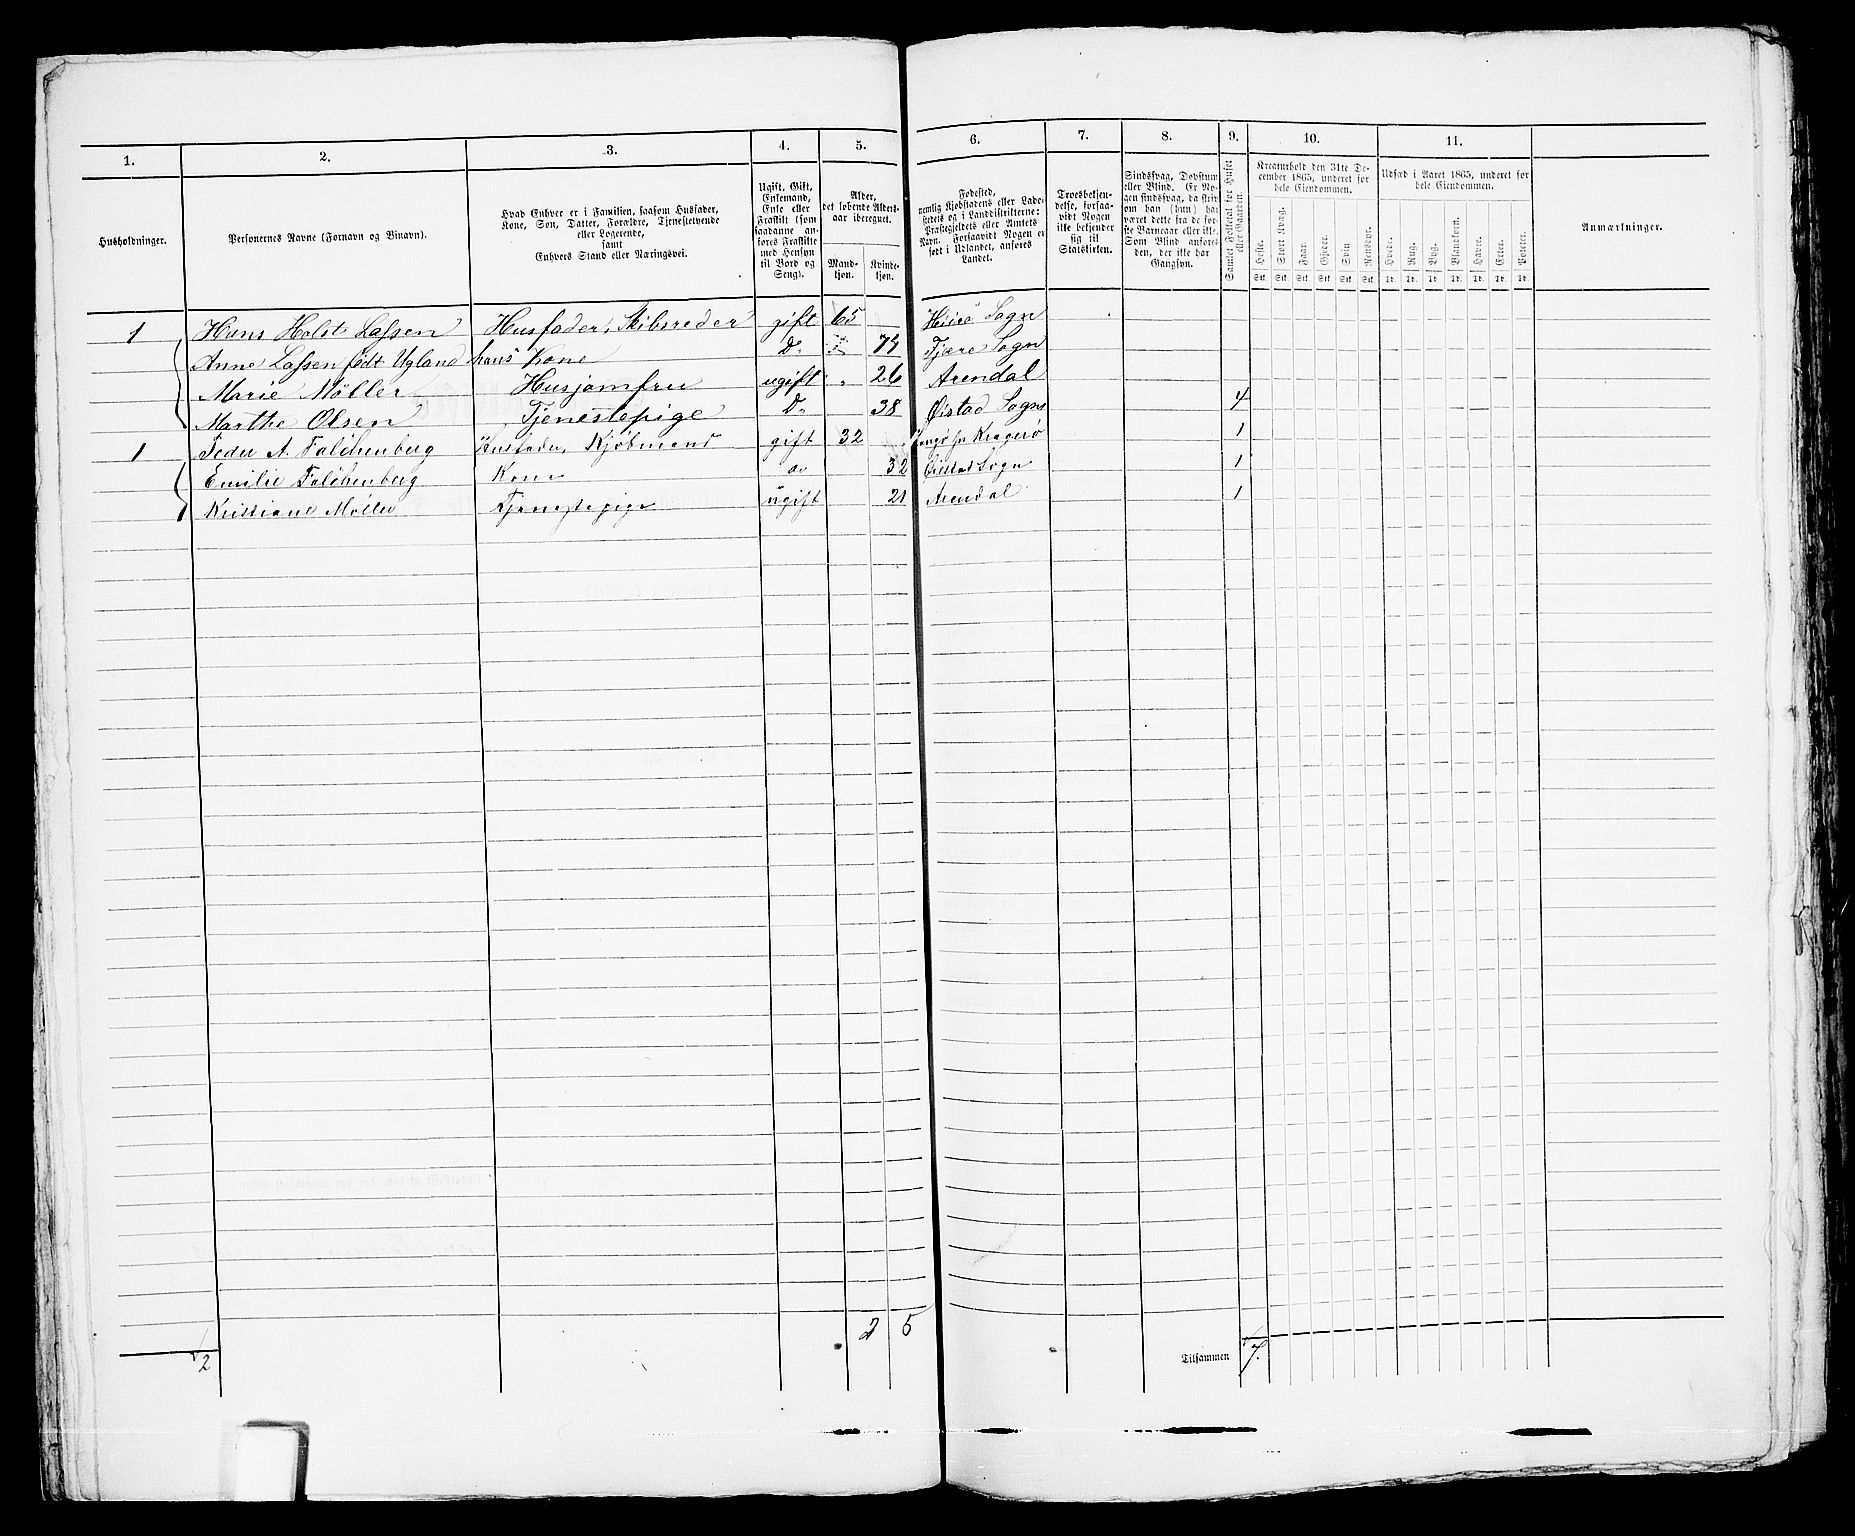 1. 2. 3. 4. 5. 6. 7. 8. 9. 10. 11.
Husholdninger.
Personernes Navne (Fornavn og Binavn).
Hvad Enhver er i Familien, saasom Husfader,
Kone, Søn, Datter, Forældre, Tjenestetyende
eller Logerende,
samt
Enhvers Stand eller Næringsvei.
Ugift, Gift,
Enkemand,
Enke eller
Fraskilt (som
saadanne an-
føres Fraskilte
med Hensyn
til Bord og
Seng).
Alder,
det løbende Alders-
aar iberegnet.
Mand-
kjøn.
Kvinde-
kjøn.
Fødested,
nemlig Kjøbstadens eller Lade-
stedets og i Landdistrikterne:
Præstegjeldets eller Annexets
Navn. Forsaavidt Nogen er
født i Udlandet, anføres
Landet.
Troesbekjen-
delse, forsaa-
vidt Nogen
ikke bekjender
sig til
Statskirken.
Sindssvag, Døvstum
eller Blind. Er No-
gen sindssvag, da skriv
om han (hun) har
været dette fra de før-
ste Barneaar eller ikke.
Som Blind anføres
den, der ikke har
Gangsyn.
Samlet Folketal for Huset
eller Gaarden.
Kreaturhold den 31te De-
cember 1865, underet for
hele Eiendommen.
Heste. Stort Kvæg. Faar. Gjeder. Svin Rensdyr.
Stk. Stk. Stk. Stk. Stk. Stk.
Udsæd i Aaret 1865, underet for
hele Eiendommen.
Hvede. Rug. Byg. Blandkorn. Havre. Erter. Poteter.
Td. Td. Td. Td. Td. Td. Td.
Anmærkninger.
1 Hans Holst Lassen Husfader, Skibsreder gift 65 Sogn
Anne Lassen født Ugland hans Kone Do 74 Fjære Sogn
Marie Møller Husjomfru ugift " 26 Arendal
Marthe Olsen Tjenestepige Do 38 Øistad Sogn 4
1 Peder A. Falchenberg Husfader, Kjøbmand gift 32 Kragerø 1
Emilie Falchenberg Kone do 32 Øiestad Sogn 1
Kristiane Møller Tjenestepige ugift 21 Arendal 1
2 2 5 Tilsammen 7.